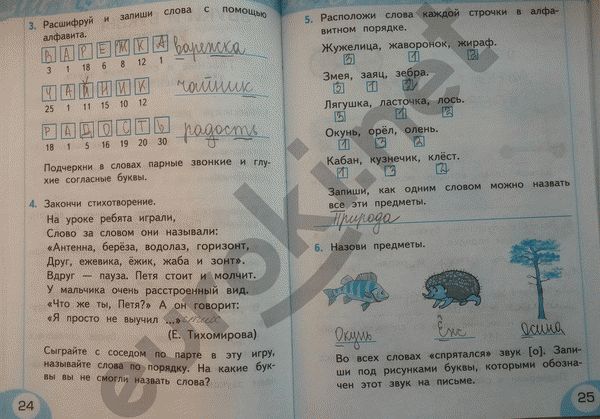 3. Расшифруй и запиши слова с помощью
алфавита.
В А Р Е Ж К А варежка
3 1 18 6 8 12 1
Ч А Й Н И К чайник
25 1 11 15 10 12
Р А Д О С Т Ь радость
18 1 5 16 19 20 30
Подчеркни в словах парные звонкие и глу-
хие согласные буквы.
4. Закончи стихотворение.
На уроке ребята играли,
Слово за словом они называли:
«Антенна, берёза, водолаз, горизонт,
Друг, ежевика, ёжик, жаба и зонт».
Вдруг — пауза. Петя стоит и молчит.
У мальчика очень расстроенный вид.
«Что же ты, Петя?» А он говорит:
«Я просто не выучил ...»
(Е. Тихомирова)
Сыграйте с соседом по парте в эту игру,
называйте слова по порядку. На какие бук-
вы вы не смогли назвать слова?
24
5. Расположи слова каждой строчки в алфа-
витном порядке.
Жужелица, жаворонок, жираф.
3 1 2
Змея, заяц, зебра.
3 1 2
Лягушка, ласточка, лось.
3 1 2
Окунь, орёл, олень.
1 3 2
Кабан, кузнечик, клёст.
1 3 2
Запиши, как одним словом можно назвать
все эти предметы.
Природа
6. Назови предметы.
Окунь Ёж сосна
Во всех словах «спрятался» звук [о]. Запи-
ши под рисунками буквы, которыми обозна-
чен этот звук на письме.
25
euroki.net